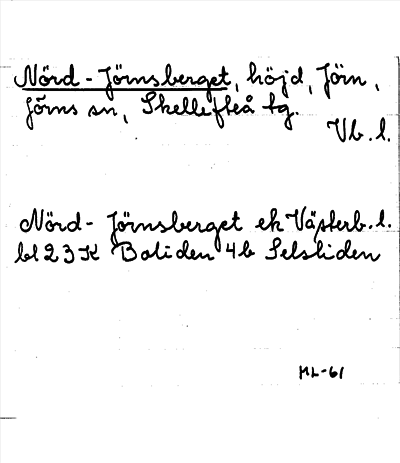 Nörd-Jörnsberget, höjd, Jörn,
Jörns sn, Skellefteå tg.
Vb. l.
Nörd-Jörnsberget ek Västerb. l.
bl 23 K Boliden 4b Selsliden
ML-61